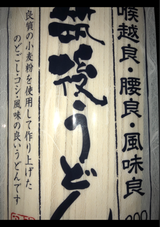 喉越良・腰良・風味良
うどん
良質の小麦粉を使用して作り上げた
のどごし・コシ・風味の良いうどんです